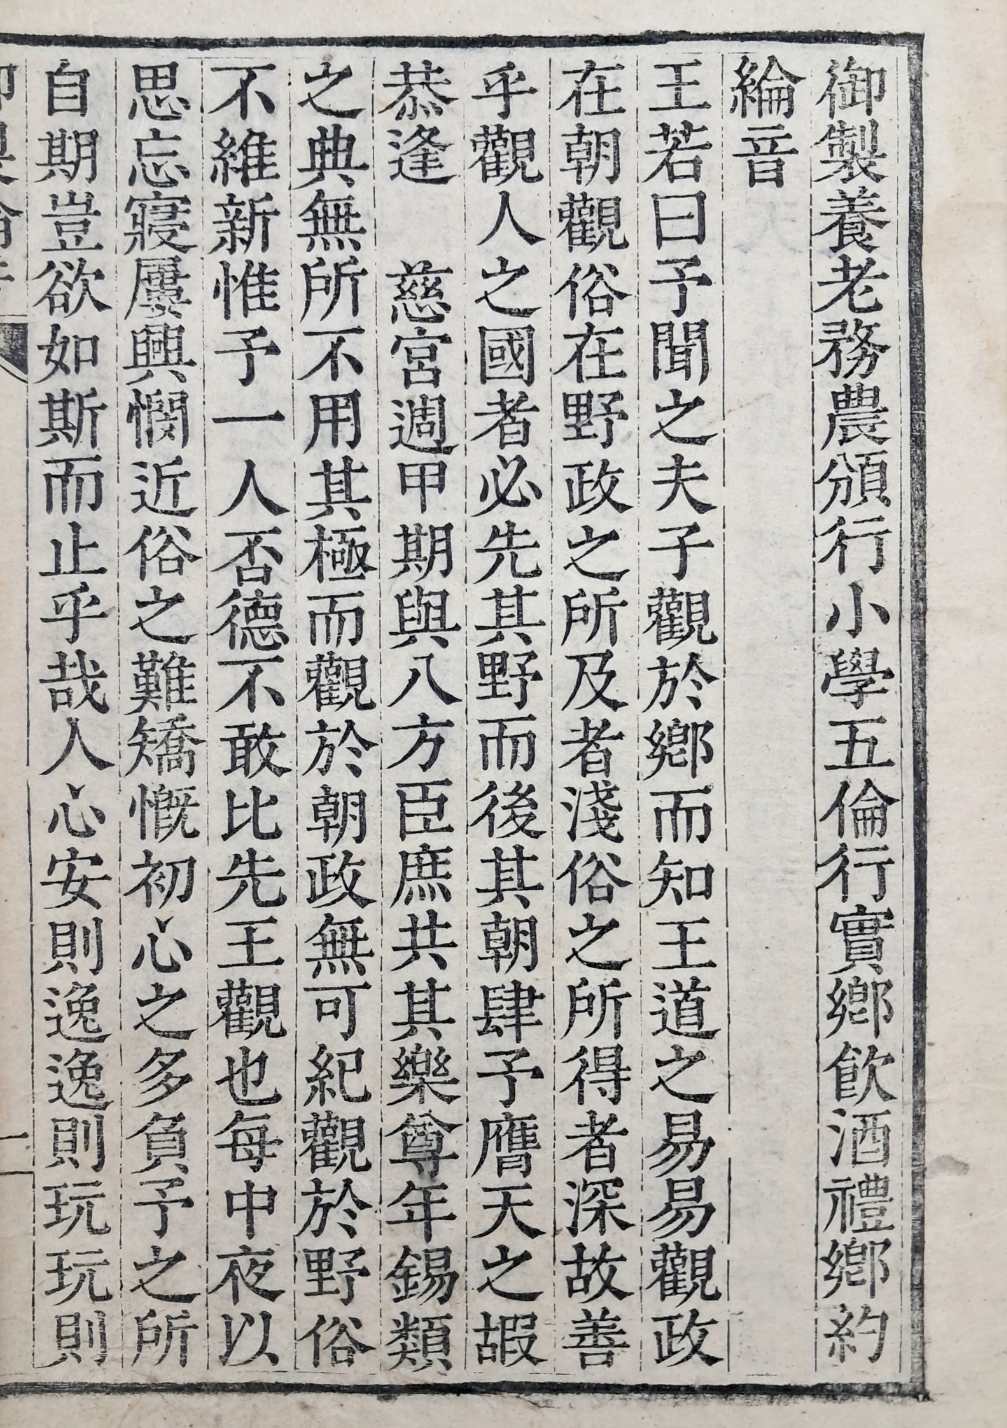 御製養老務農頒行小學五倫行實鄉飲酒禮鄉約
綸音
王若曰予聞之夫子觀於鄉而知王道之易易觀政
在朝觀俗在野政之所及者淺俗之所得者深故善
乎觀人之國者必先其野而後其朝肆予膺天之嘏
恭逢　慈宮週甲期與八方臣庶共其樂尊年錫類
之典無所不用其極而觀於朝政無可紀觀於野俗
不維新惟予一人否德不敢比先王觀也每中夜以
思忘寢屢興憫近俗之難矯慨初心之多負予之所
自期豈欲如斯而止乎哉人心安則逸逸則玩玩則